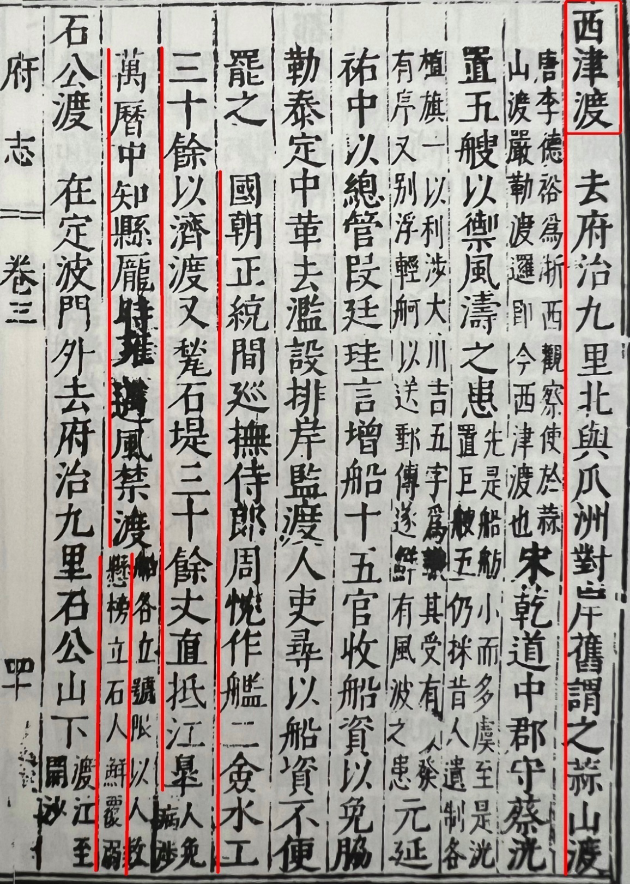 西津渡 去府治九里北與瓜洲對岸舊謂之蒜山渡
唐李德裕為浙西觀察使於蒜
山渡嚴勒渡邏即今西津渡也
宋乾道中郡守蔡洸
置五艘以禦風濤之患
先是船舫小而多虞至是洸
置巨艘五仍採昔人遺制各
植旗一以利涉大川吉五字為其受有人發
有序又别浮輕舸以送郵傳遂鮮有風波之患
元延
祐中以總管段廷珪言增船十五官收船資以免脇
勒泰定中革去濫設排岸監渡人吏尋以船資不便
罷之 國朝正統間廵撫侍郎周忱作艦二僉水工
三十餘以濟渡又甃石堤三十餘丈直抵江皐
人免
病涉
萬曆中知縣龎時雍遇風禁渡
船各立號限以人數
懸榜立石人鮮覆溺
石公渡 在定波門外去府治九里石公山下
渡江至
開沙
府志 卷三 四十